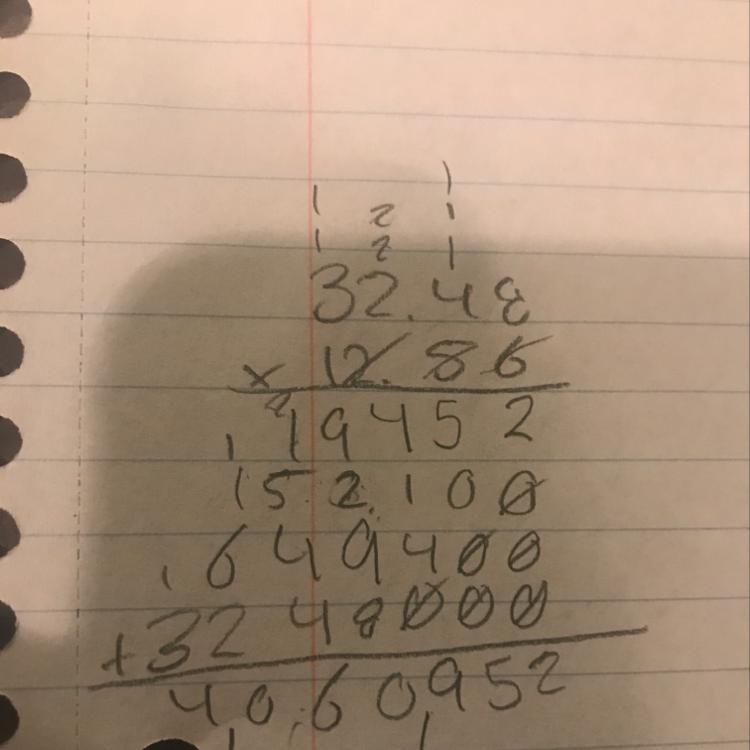 1
1 2 1
1 2 1
32.48
x 12.86
2
1 19452
152.100
1 649400
+3248000
40.60,952
1 1